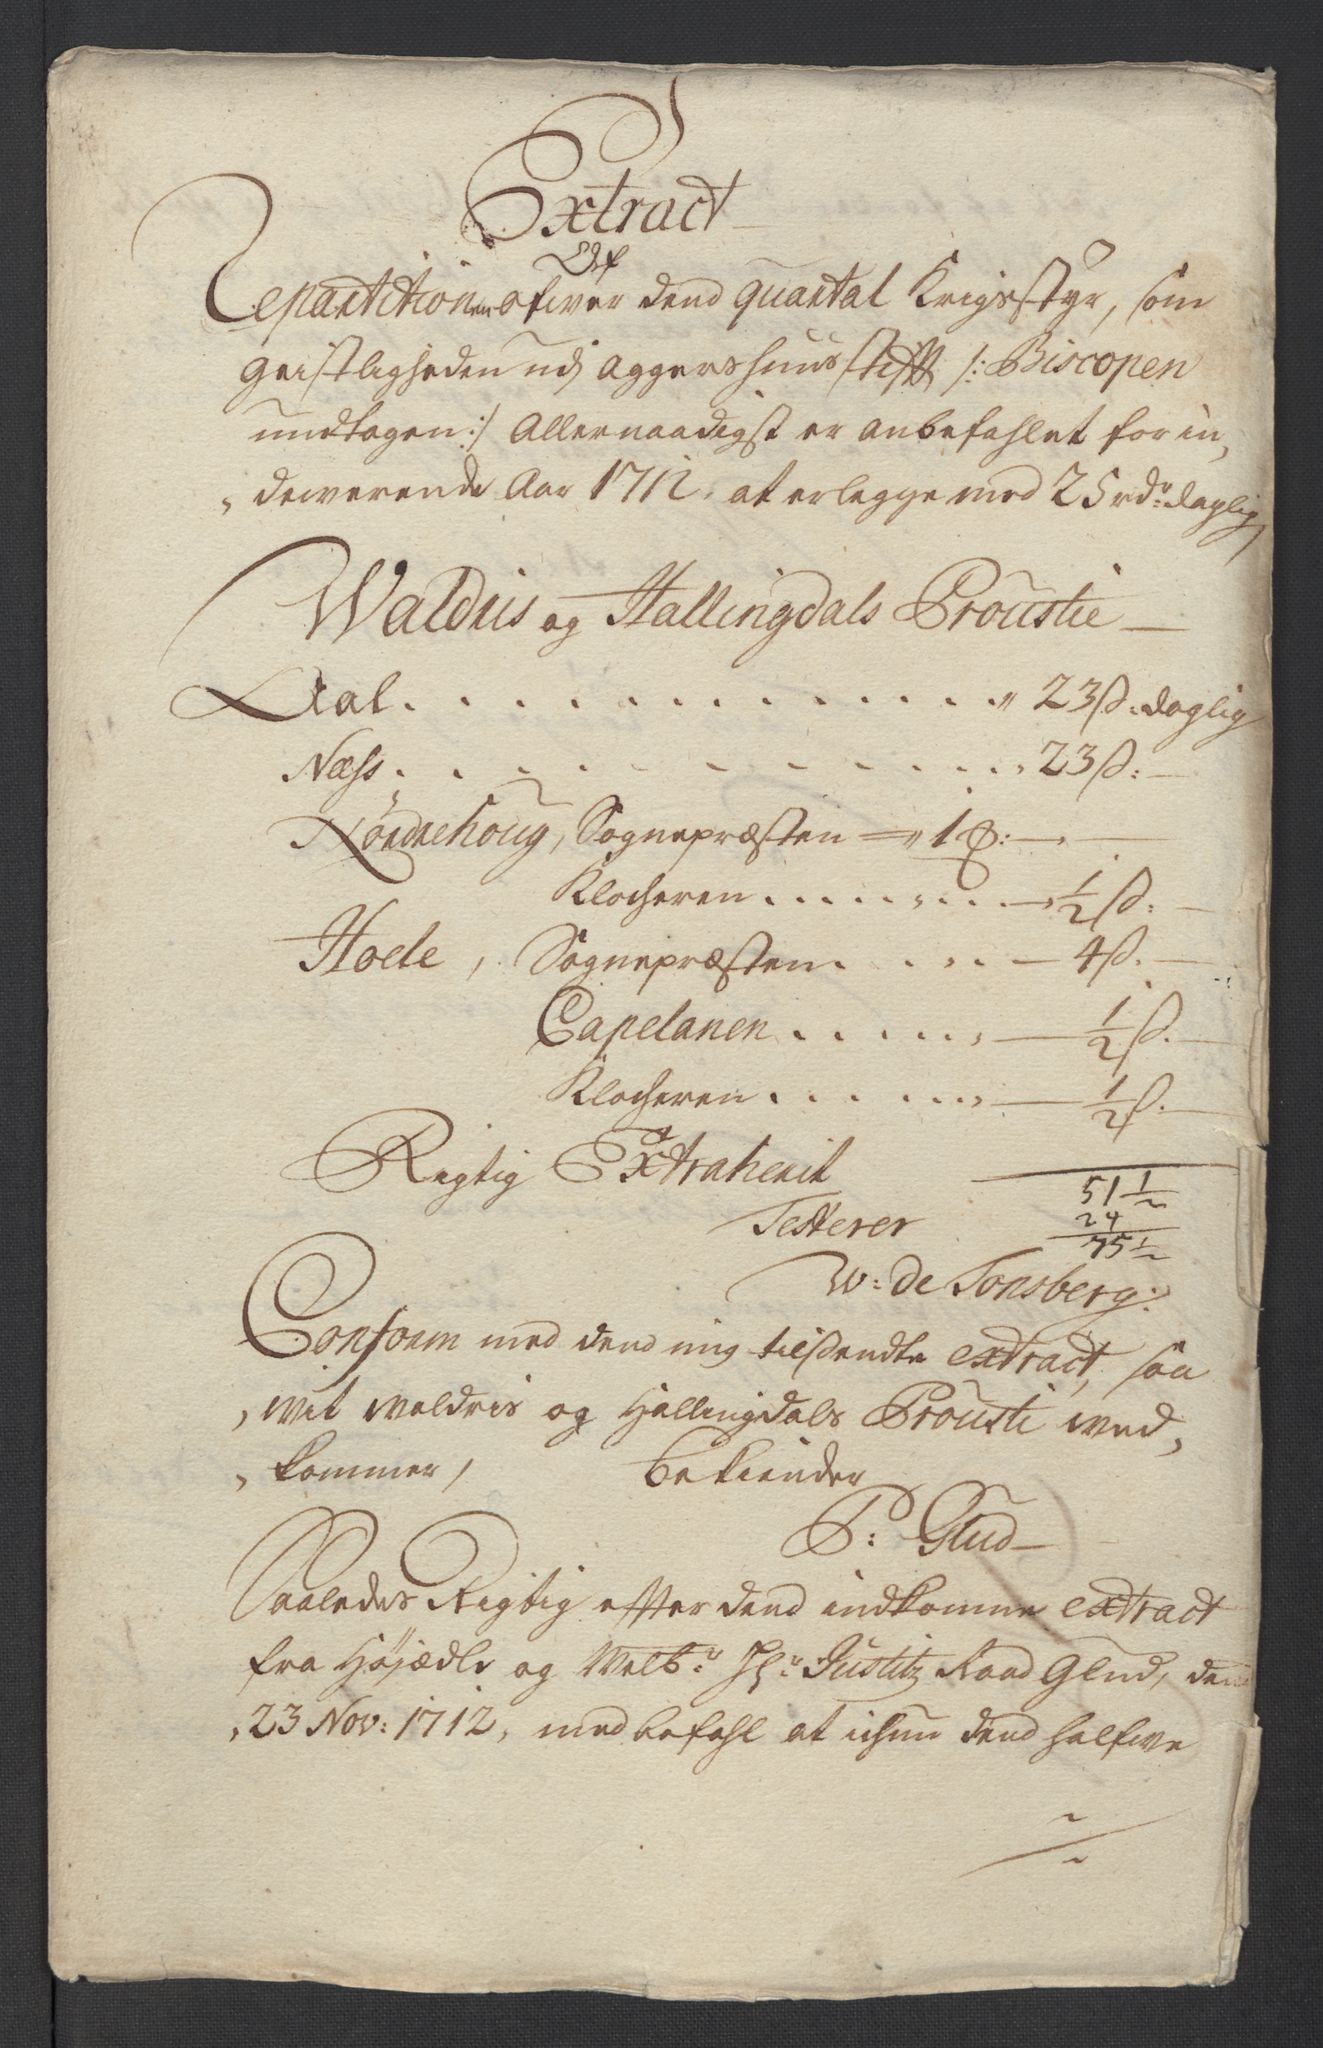 Extract
Af
Repartitionen ofwer dend quartal Krigsstyr, som
geistligheden udj Aggershuus stifft /: Biscopen
undtagen :/ Allernaadigst er anbefahlet for in,
, dewerende Aar 1712, at erlegge med 25 rdr: daglig
Waldris og Hallingdals Proustie
Aal . . . . . . . . . . . . . " 23 ß: daglig
Næss . . . . . . . . . . . . 23 ß:
Nordrehoug, Sognepræsten — " 1 :
Klocheren . . . . . . . . . . ½ ß:
Hoele, Sognepræsten . . . . . 4 ß.
Capelanen . . . . . . . ½ ß.
Klocheren . . . . . . . ½ ß.
Rigtig Extraherit
51 ½
Testerer
24
75 ½
W: de Tonsberg:
Conform med dend mig tilsendte extract, saa
, wit waldris og Hallingdals Prousti wed,
, kommer, bekiender
P: Glud
Saaledes Rigtig effter dend indkomne extract
fra Højædle og Welbr: Hr: Justitz Raad Glud, dend
, 23 Nov: 1712, med befahl at ichun dend halfwe